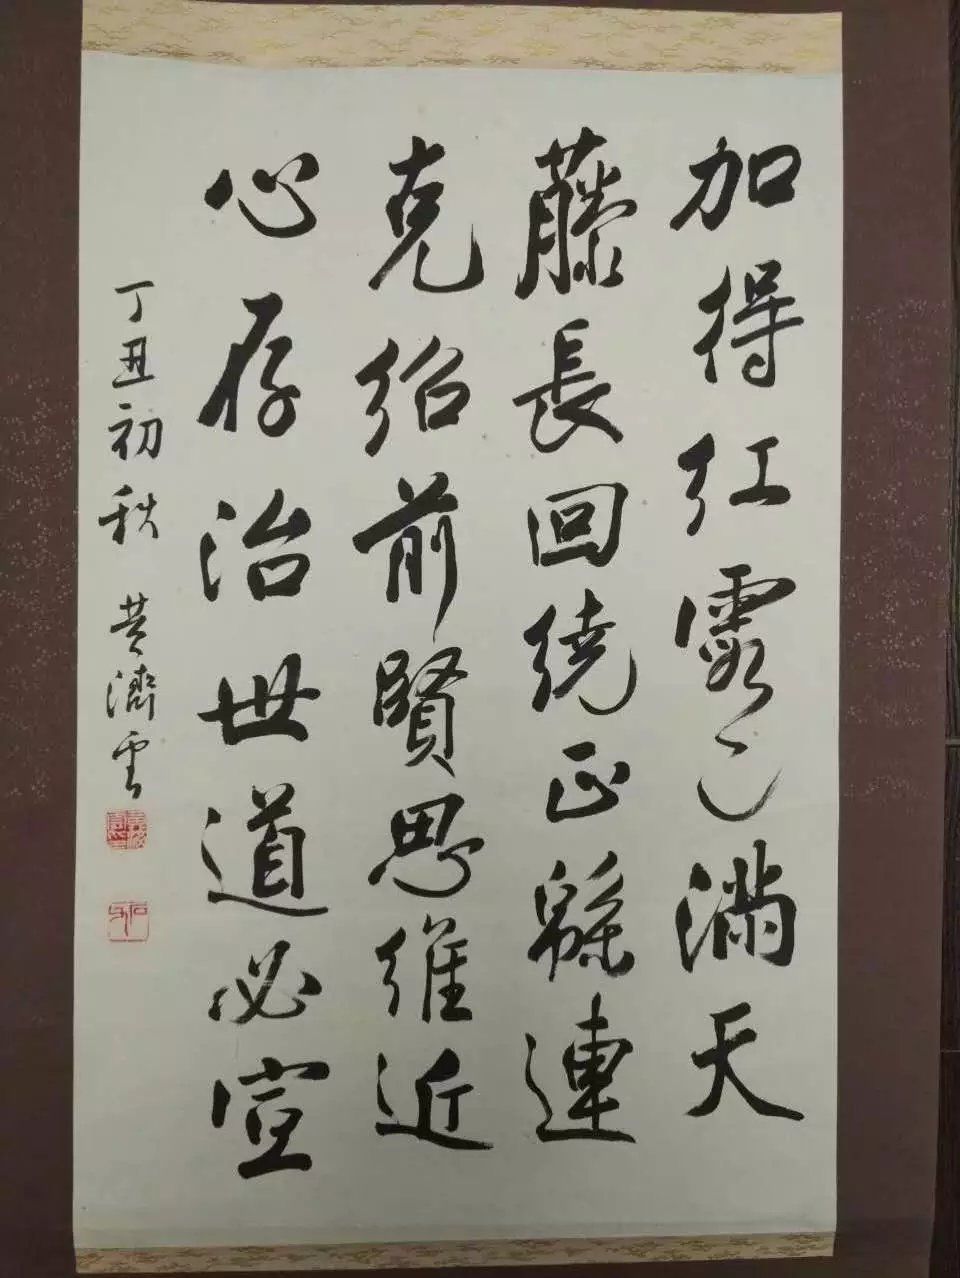 加得红霞已满天
藤長回绕正緜連
克绍前賢思维近
心存治世道必宣
丁丑初秋 黄濟雲